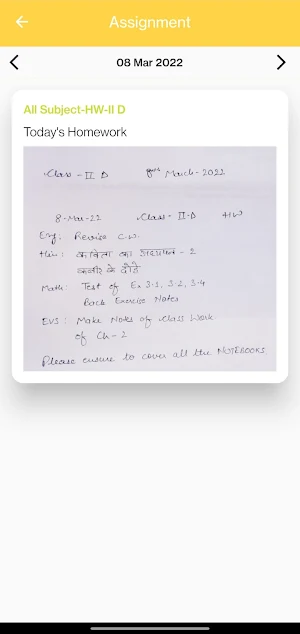 Assignment
08 Mar 2022
All Subject-HW-II D
Today's Homework
Class - II D 8th March - 2022
8-Mar-22 Class - II-D HW
Eng: Revise C.W.
Hin: कविता का - 2
कबीर के दोहे
Math: Test of Ex 3.1, 3.2, 3.4
Back Exercise Notes
EVS: Make Notes of Class Work
of Ch-2
Please ensure to cover all the NOTEBOOKS